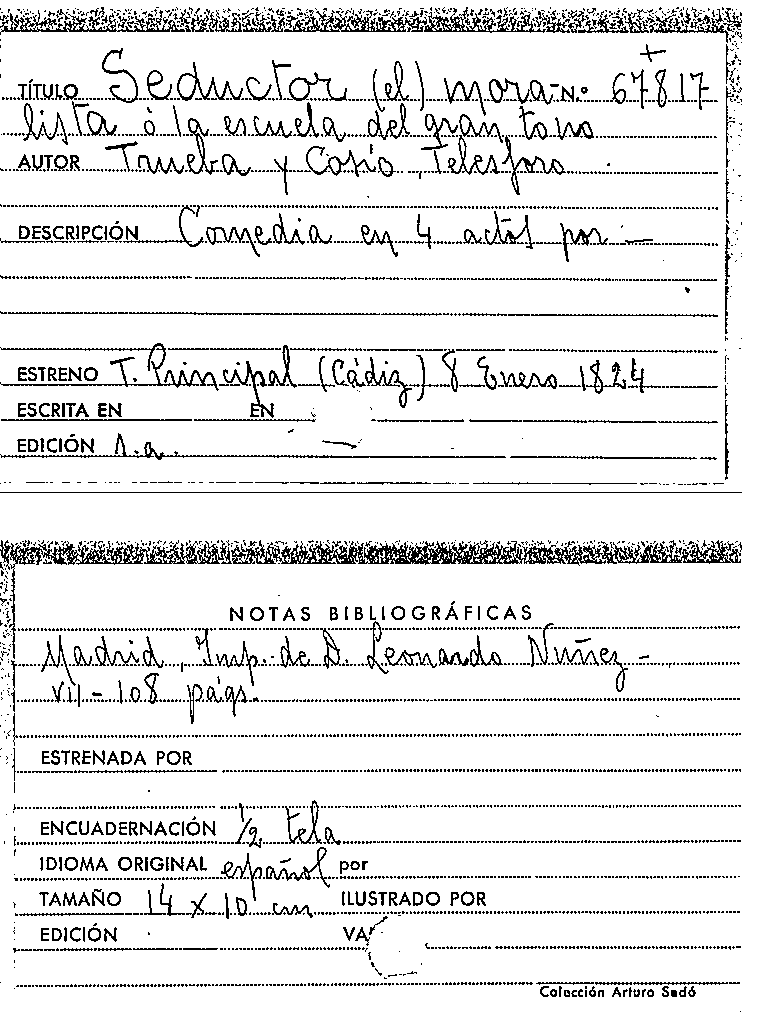 TÍTULO Seductor (el) mora- N.º 67817
lista ó la escuela del gran tono
AUTOR Trueba y Cosío, Telesforo
DESCRIPCIÓN Comedia en 4 actos por —
ESTRENO T. Principal (Cádiz) 8 Enero 1824
ESCRITA EN EN
EDICIÓN 1.a.
NOTAS BIBLIOGRÁFICAS
Madrid, Imp. de D. Leonardo Nuñez -
VII - 108 págs.
ESTRENADA POR
ENCUADERNACIÓN 1/2 tela
IDIOMA ORIGINAL español por
TAMAÑO 14 x 10 cm ILUSTRADO POR
EDICIÓN VA
Colección Arturo Sedó